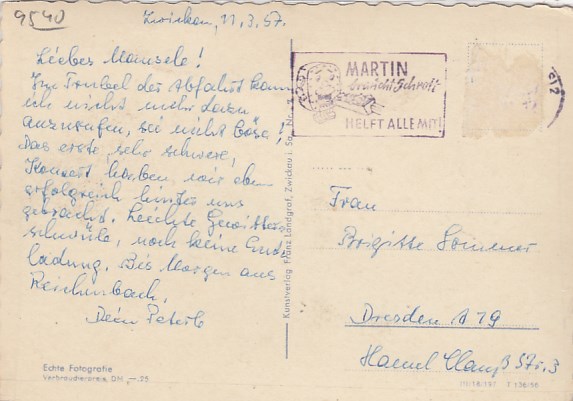 9540
Zwickau, 11.3.57.
Liebes Mausele!
Im Trubel der Abfahrt kam
ich nicht mehr dazu
anzurufen, sei nicht böse!
Das erste, sehr schwere,
Konzert haben wir eben
erfolgreich hinter uns
gebracht. Leichte Gewitter-
schwüle, noch keine Ent-
ladung. Bis Morgen aus
Reichenbach,
Dein Peterle
Echte Fotografie
Verbraucherpreis, DM -.25
Kunstverlag Franz Landgraf, Zwickau i. Sa., Nr.
MARTIN
braucht Schrott
HELFT ALLE MIT!
Frau
Brigitte Sommer
Dresden A 19
Haenel Clauß Str. 3